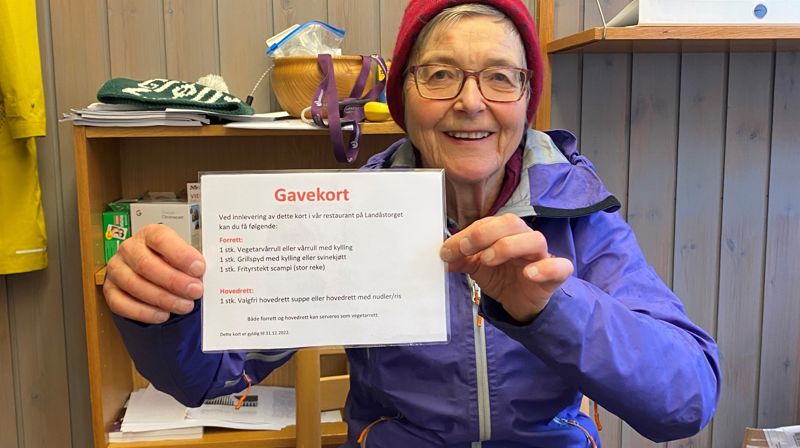 Gavekort
Ved innlevering av dette kort i vår restaurant på Landåstorget
kan du få følgende:
Forrett:
1 stk. Vegetarvårrull eller vårrull med kylling
1 stk. Grillspyd med kylling eller svinekjøtt
1 stk. Frityrstekt scampi (stor reke)
Hovedrett:
1 stk. Valgfri hovedrett suppe eller hovedrett med nudler/ris
Både forrett og hovedrett kan serveres som vegetarrett.
Dette kort er gyldig til 31.12.2022.